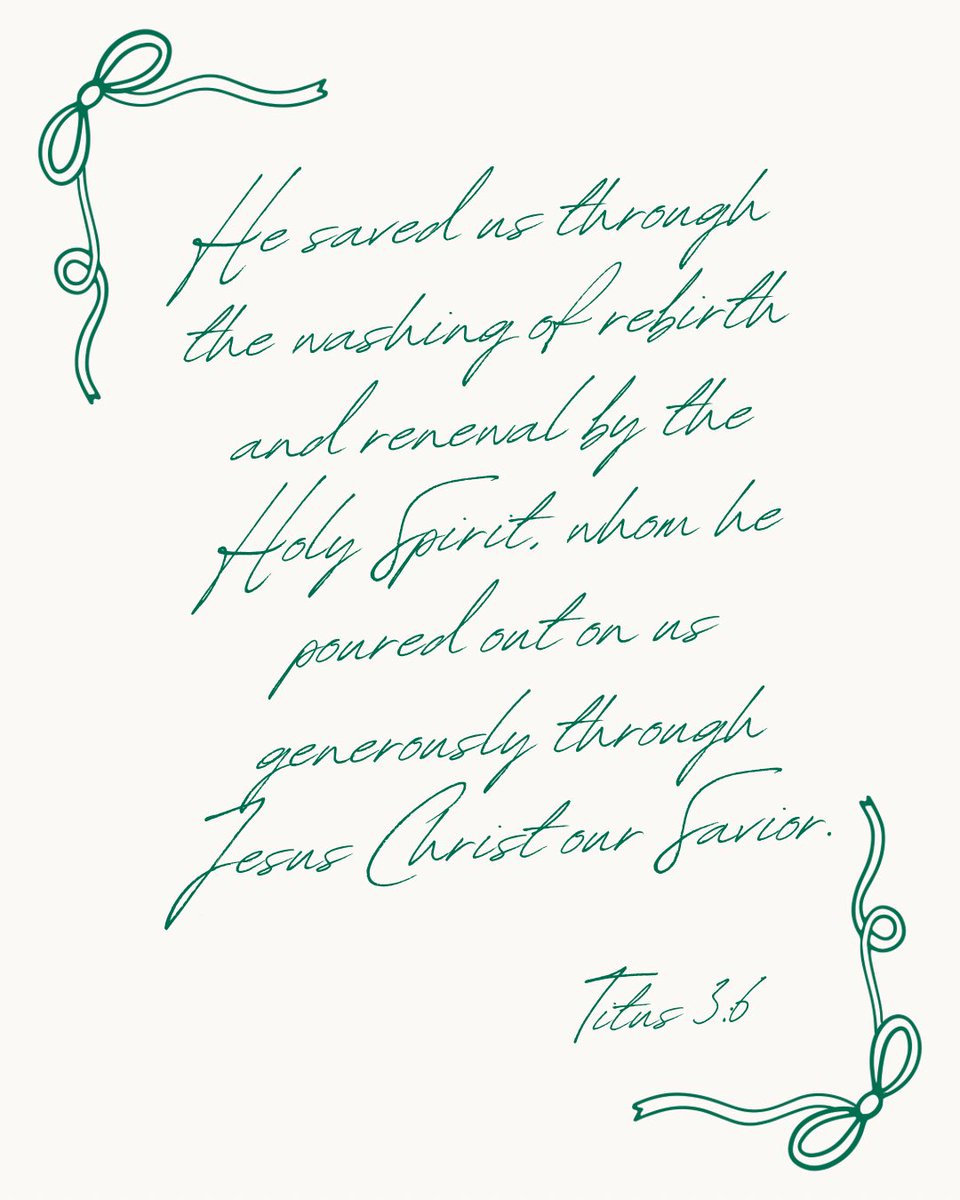 He saved us through
the washing of rebirth
and renewal by the
Holy Spirit, whom he
poured out on us
generously through
Jesus Christ our Savior.
Titus 3:6